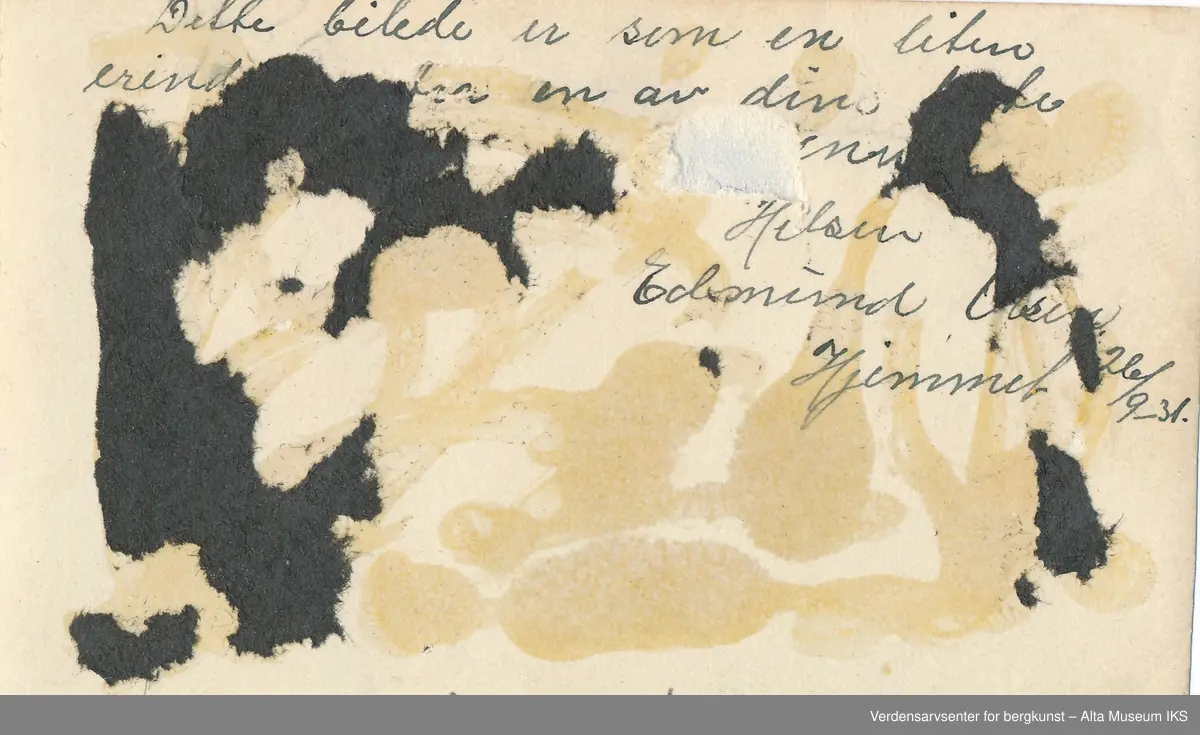 Dette bilede er som en liten
erind fra en av dine
Hilsen
Edmund Olsen
Hjemmet 26/9-31.
Verdensarvsenter for bergkunst – Alta Museum IKS